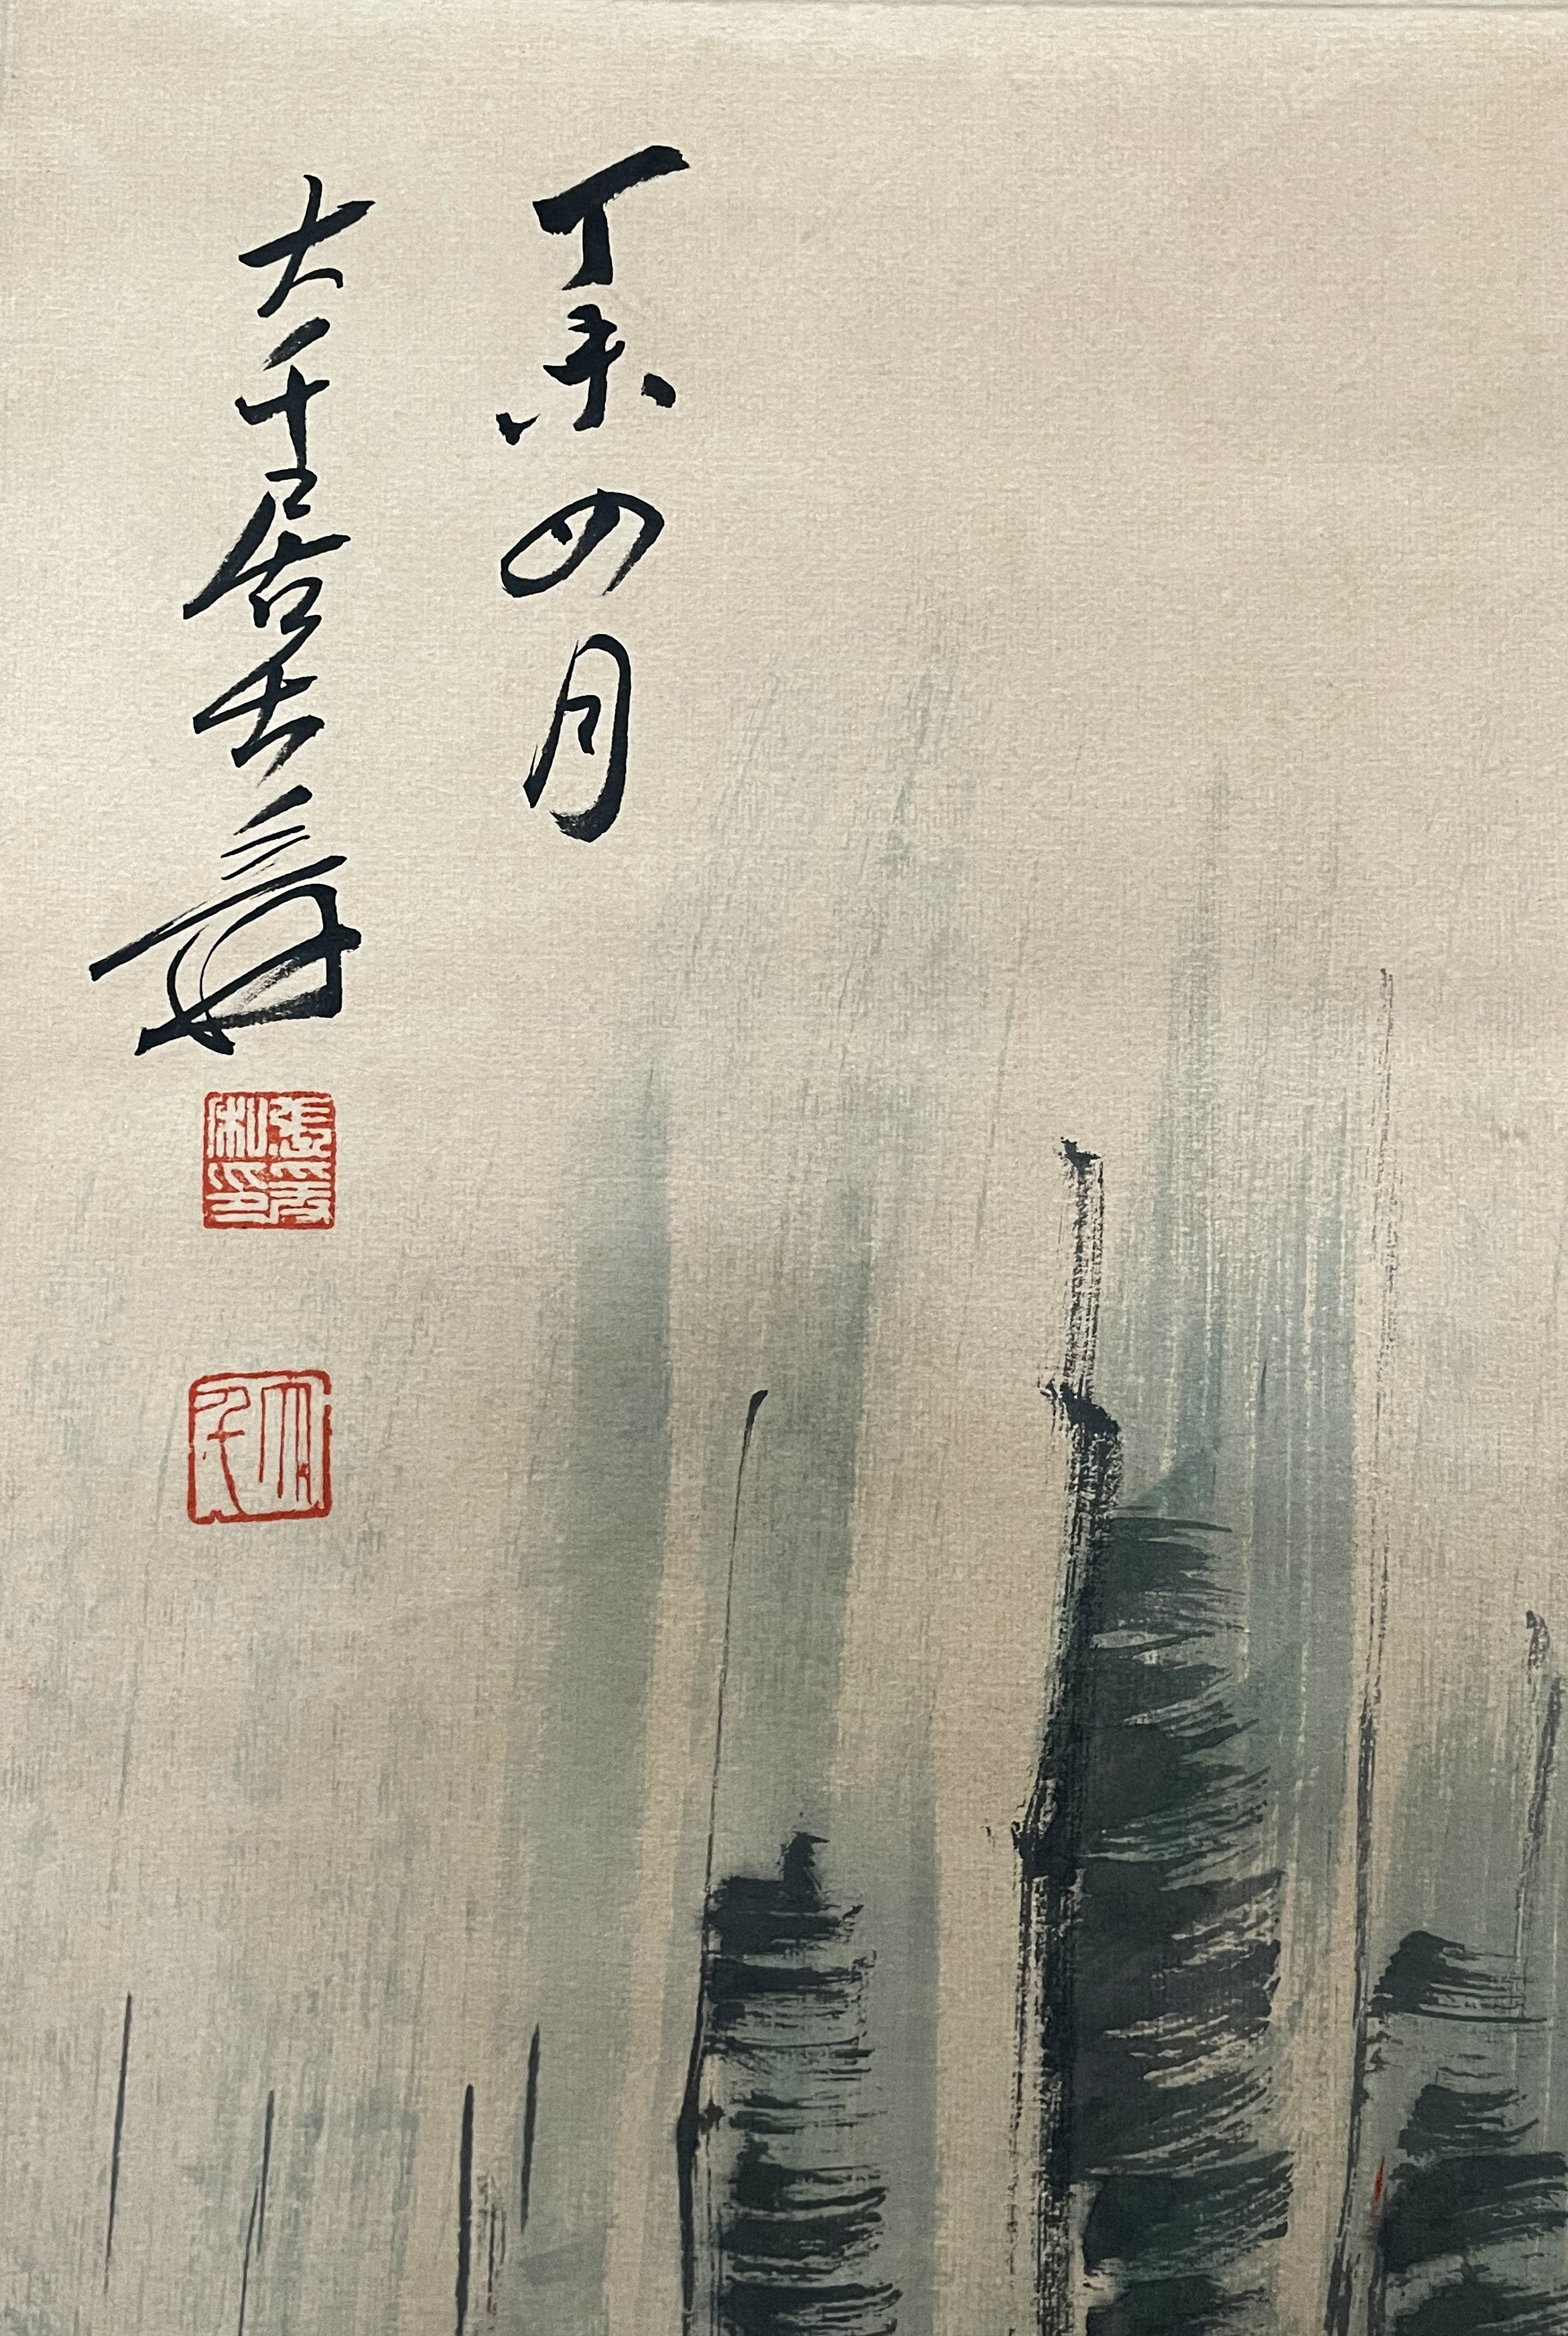 丁未四月
大千居士爰
張爰私印
大千